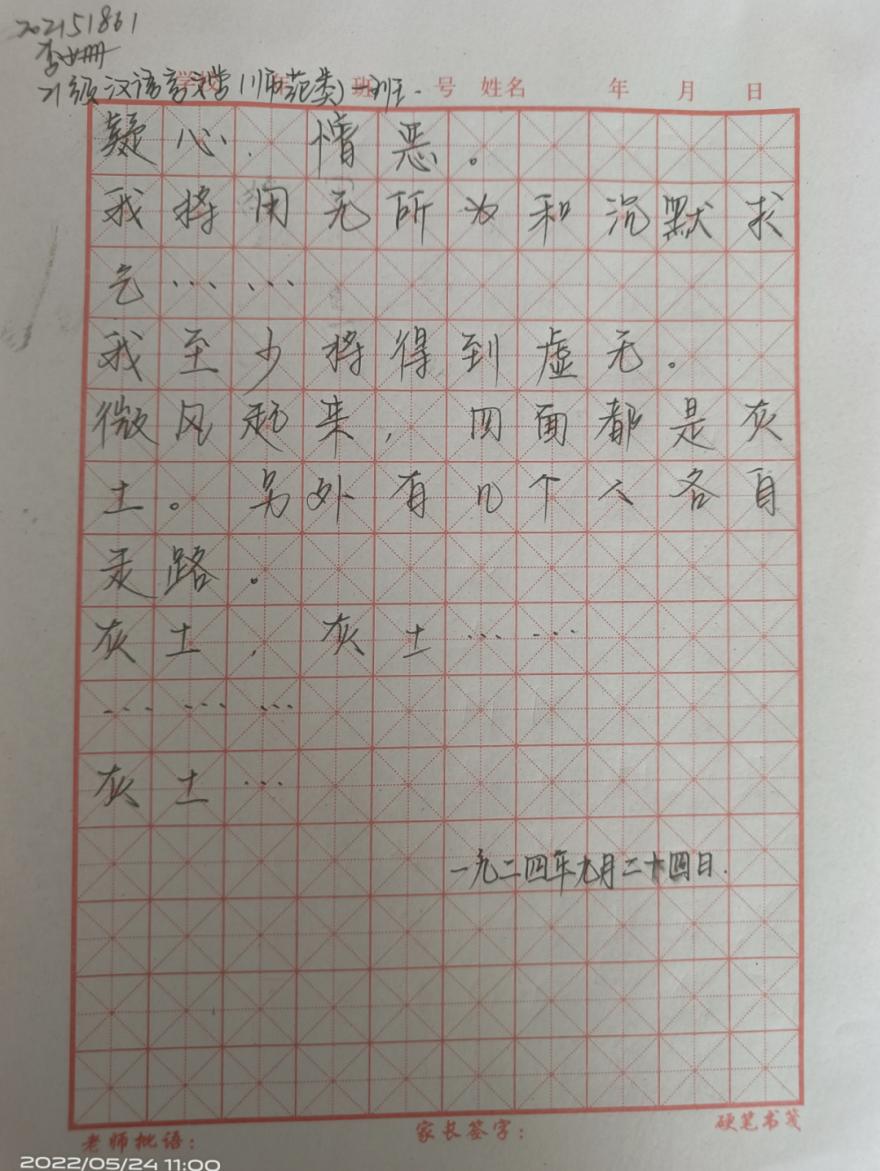 202151861
李姗姗
21级汉语言文学(师范类)一班.
学校 年 班 号 姓名 年 月 日
疑心、憎恶。
我将用无所为和沉默求
乞……
我至少将得到虚无。
微风起来,四面都是灰
土。另外有几个人各自
走路。
灰土,灰土……
………
灰土…
一九二四年九月二十四日.
老师批语: 家长签字: 硬笔书笺
2022/05/24 11:00